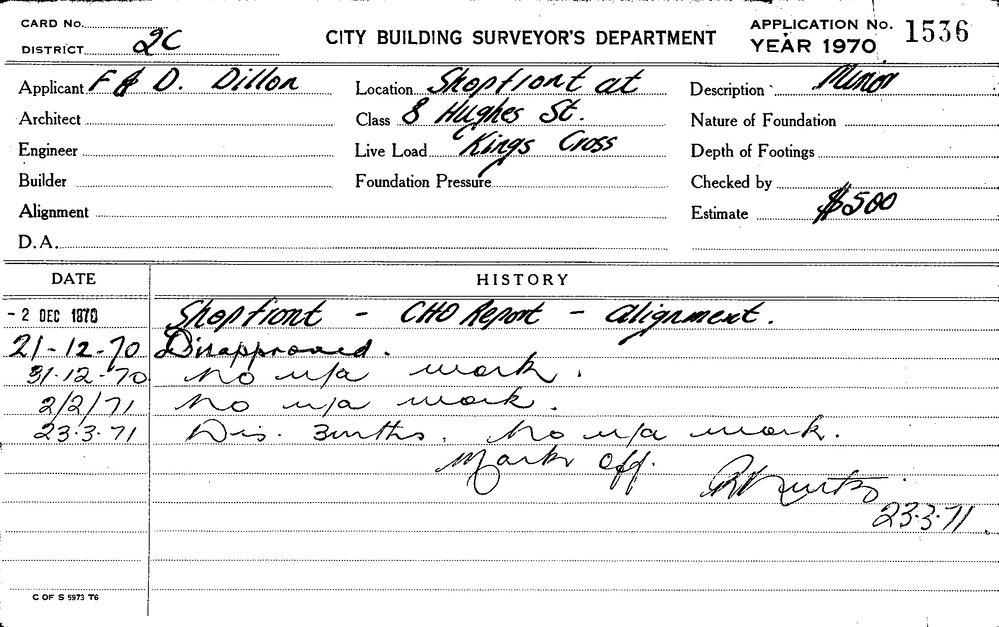 CARD No.
DISTRICT 2C
CITY BUILDING SURVEYOR'S DEPARTMENT
APPLICATION No. 1536
YEAR 1970
Applicant F & D. Dillon
Location Shopfront at
Description Minor
Architect
Class 8 Hughes St.
Nature of Foundation
Engineer
Live Load Kings Cross
Depth of Footings
Builder
Foundation Pressure
Checked by
Alignment
Estimate $500
D.A.
DATE HISTORY
- 2 DEC 1970 Shopfront - CHO Report - alignment.
21-12-70 Disapproved.
31-12-70 No u/a work.
2/2/71 No u/a work.
23.3.71 Dis. 3mths. No u/a work.
Mark off.
23.3.71.
C OF S 5973 T6